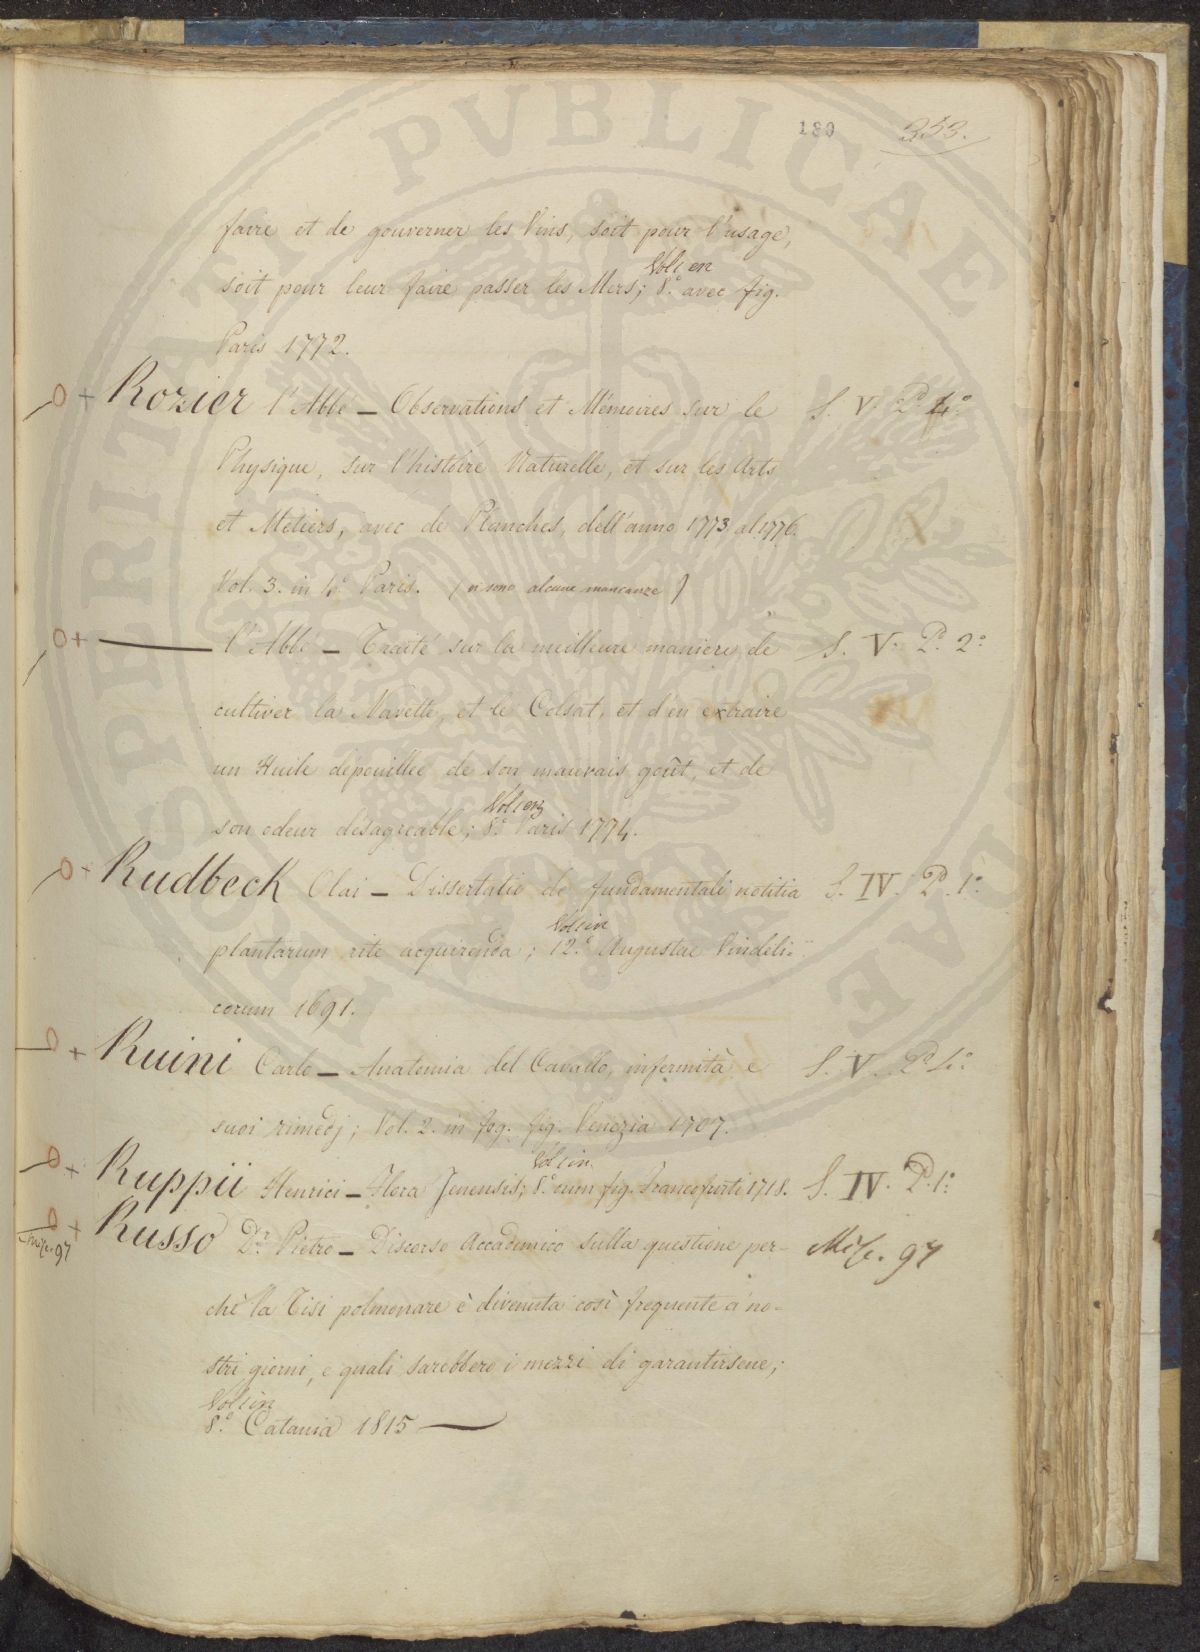 180 353.
faire et de gouverner les Vins, soit pour l'usage,
soit pour leur faire passer les Mers; Vol 1 en 8.° avec fig.
Paris 1772.
Rozier l'Abbé — Observations et Mémoires sur le S. V. P. 4.°
Physique, sur l'histoire Naturelle, et sur les Arts
et Métiers, avec de Planches, dell'anno 1773. al 1776.
Vol. 3. in 4.° Paris. (vi sono alcune mancanze)
—— l'Abbé — Traité sur la meilleure maniere de S. V. P. 2.°
cultiver la Navette, et le Colsat, et d'en extraire
un Huile depouillée de son mauvais goût, et de
son odeur désagreable; Vol 1 en 8.° Paris 1774.
Rudbeck Olai — Dissertatio de fundamentali notitia S. IV. P. 1.°
plantarum rite acquirenda; Vol 1 in 12.° Augustae Vindeli=
corum 1691.
Ruini Carlo — Anatomia del Cavallo, infermità e S. V. P. 4.°
suoi rimedj; Vol. 2. in fog. fig. Venezia 1707.
Ruppii Henrici — Flora Jenensis; Vol 1 in 8.° cum fig. Francofurti 1718. S. IV. P. 1.°
Misc. 97 Russo D.r Pietro — Discorso Accademico sulla questione per- Misc. 97
chè la Tisi polmonare è divenuta così frequente a' no-
stri giorni, e quali sarebbero i mezzi di garantirsene;
Vol 1 in 8.° Catania 1815 —